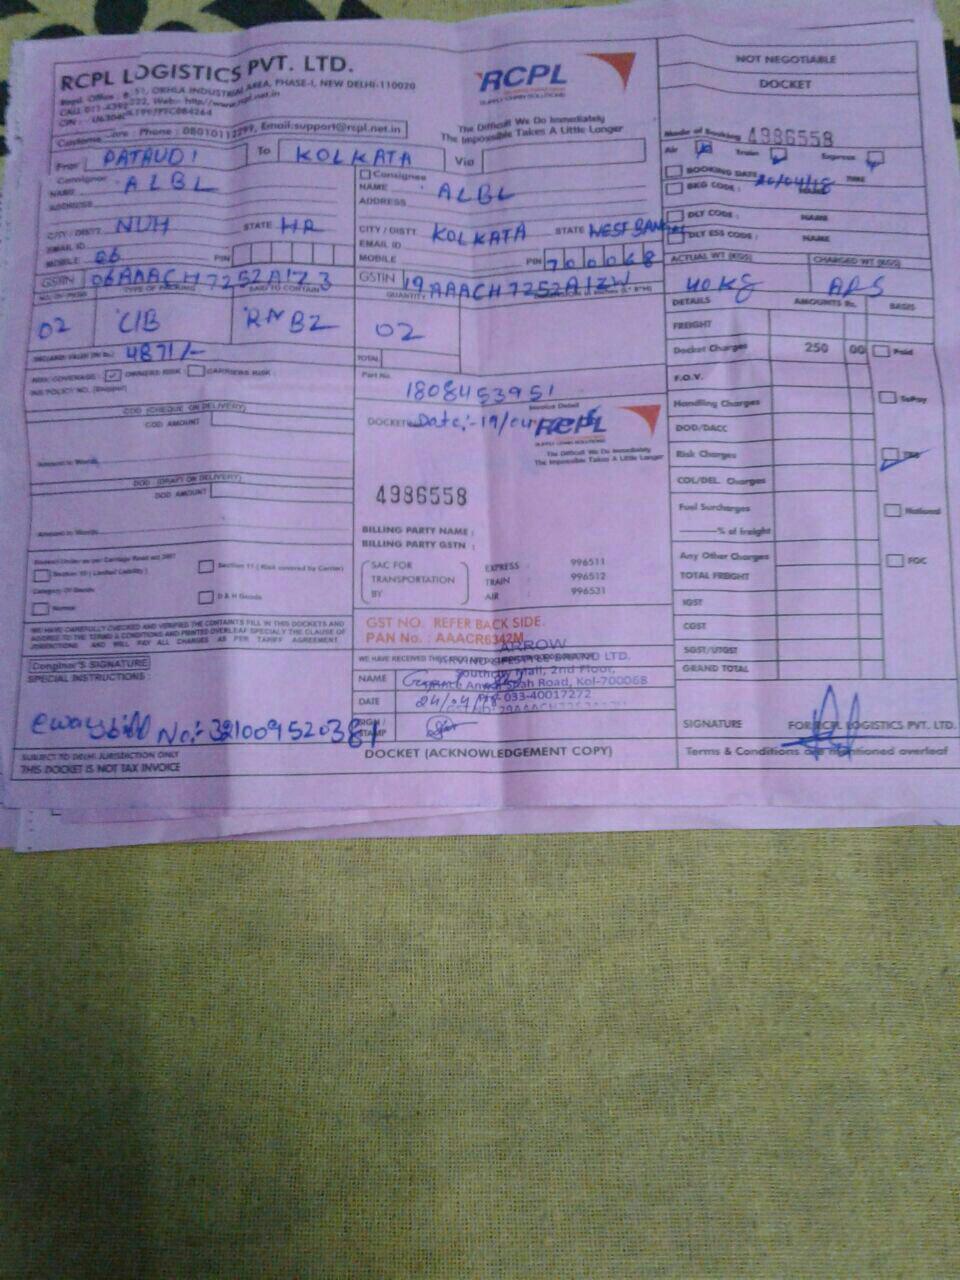 RCPL LOGISTICS PVT. LTD.
Regd. Office : B, 51, OKHLA INDUSTRIAL AREA, PHASE-I, NEW DELHI-110020
Customer Care : Phone : 08010112299, Email:support@rcpl.net.in
RCPL
SUPPLY CHAIN SOLUTIONS
The Difficult We Do Immediately
The Impossible Takes A Little Longer
NOT NEGOTIABLE
DOCKET
Mode of Booking 4986558
Air Train Express
From PATAUDI To KOLKATA Via
BOOKING DATE 20/04/18 TIME
BKG CODE : NAME
DLY CODE : NAME
DLY ESS CODE : NAME
Consignor
NAME ALBL
ADDRESS
CITY / DISTT. NUH STATE HR
EMAIL ID
MOBILE 06 PIN
GSTIN 06AAACH7252A1Z3
Consignee
NAME ALBL
ADDRESS
CITY / DISTT. KOLKATA STATE WEST BANGAL
EMAIL ID
MOBILE PIN 700068
GSTIN 19AAACH7252A1ZW
ACTUAL WT (KGS) CHARGED WT (KGS)
40 KG APS
NO. OF PKGS TYPE OF PACKING SAID TO CONTAIN QUANTITY
02 C/B RNBZ 02
DECLARED VALUE (IN Rs.) 4871/-
TOTAL
RISK COVERAGE : OWNERS RISK : CARRIERS RISK :
INS POLICY NO. (Shipper)
COD (CHEQUE ON DELIVERY)
COD AMOUNT
Amount in Words
DOD (DRAFT ON DELIVERY)
DOD AMOUNT
Amount in Words
Section 10 ( Limited Liability )
Section 11 ( Risk covered by Carrier)
Category Of Goods
Normal
D & H Goods
WE HAVE CAREFULLY CHECKED AND VERIFIED THE CONTAINTS FILL IN THIS DOCKETS AND
ADDREE TO THE TERMS & CONDITIONS AND PRINTED OVERLEAF SPECIALY THE CLAUSE OF
JURISDICTIONS AND WILL PAY ALL CHARGES AS PER TARIFF AGREEMENT
Consinor'S SIGNATURE
SPECIAL INSTRUCTIONS :
ewaybill No:- 321009520381
SUBJECT TO DELHI JURISDICTION ONLY
THIS DOCKET IS NOT TAX INVOICE
Part No.
1808453951
Invoice Detail
DOCKET Date:- 19/04
RCPL
SUPPLY CHAIN SOLUTIONS
The Difficult We Do Immediately
The Impossible Takes A Little Longer
4986558
BILLING PARTY NAME :
BILLING PARTY GSTN :
SAC FOR TRANSPORTATION BY
EXPRESS : 996511
TRAIN : 996512
AIR : 996531
GST NO. REFER BACK SIDE.
PAN No. : AAACR6342M
ARROW
ARVIND LIFESTYLE BRAND LTD.
Mall, 2nd Floor,
Shah Road, Kol-700068
033-40017272
NAME
DATE 24/04/18
SIGN / STAMP
DOCKET (ACKNOWLEDGEMENT COPY)
DETAILS AMOUNTS Rs. BASIS
FREIGHT
Docket Charges 250 00 Paid
F.O.V.
Handling Charges ToPay
DOD/DACC
Risk Charges
COL/DEL. Charges
Fuel Surcharges National
% of freight
Any Other Charges FOC
TOTAL FREIGHT
IGST
CGST
SGST/UTGST
GRAND TOTAL
SIGNATURE FOR RCPL LOGISTICS PVT. LTD.
Terms & Conditions are mentioned overleaf